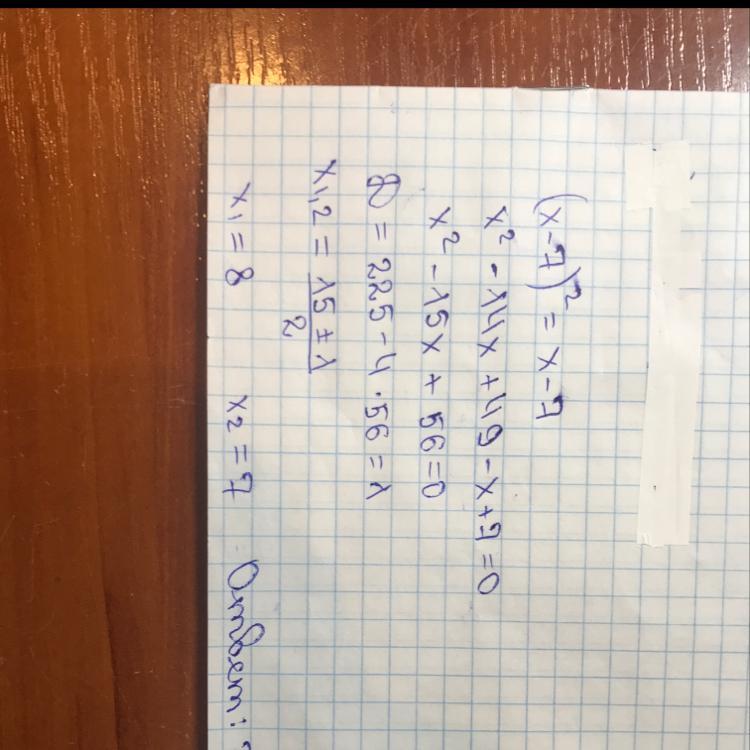 (x-7)² = x-7
x² - 14x + 49 - x + 7 = 0
x² - 15x + 56 = 0
D = 225 - 4 · 56 = 1
x₁,₂ = (15 ± 1)/2
x₁ = 8 x₂ = 7 Ответ: